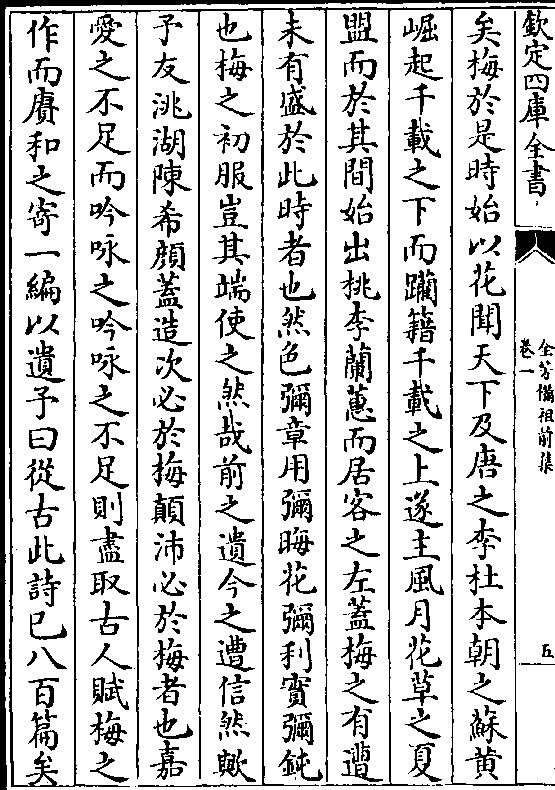 欽定四庫全書
全芳備祖前集
卷一
五
矣梅於是時始以花聞天下及唐之李杜本朝之蘇黄
崛起千載之下而躪籍千載之上遂主風月花草之夏
盟而於其間始出桃李蘭蕙而居客之左蓋梅之有遭
未有盛於此時者也然色彌章用彌晦花彌利實彌鈍
也梅之初服豈其端使之然哉前之遺今之遭信然歟
予友洮湖陳希顔蓋造次必於梅顛沛必於梅者也嘉
愛之不足而吟咏之吟咏之不足則盡取古人賦梅之
作而賡和之寄一編以遺予曰從古此詩已八百篇矣